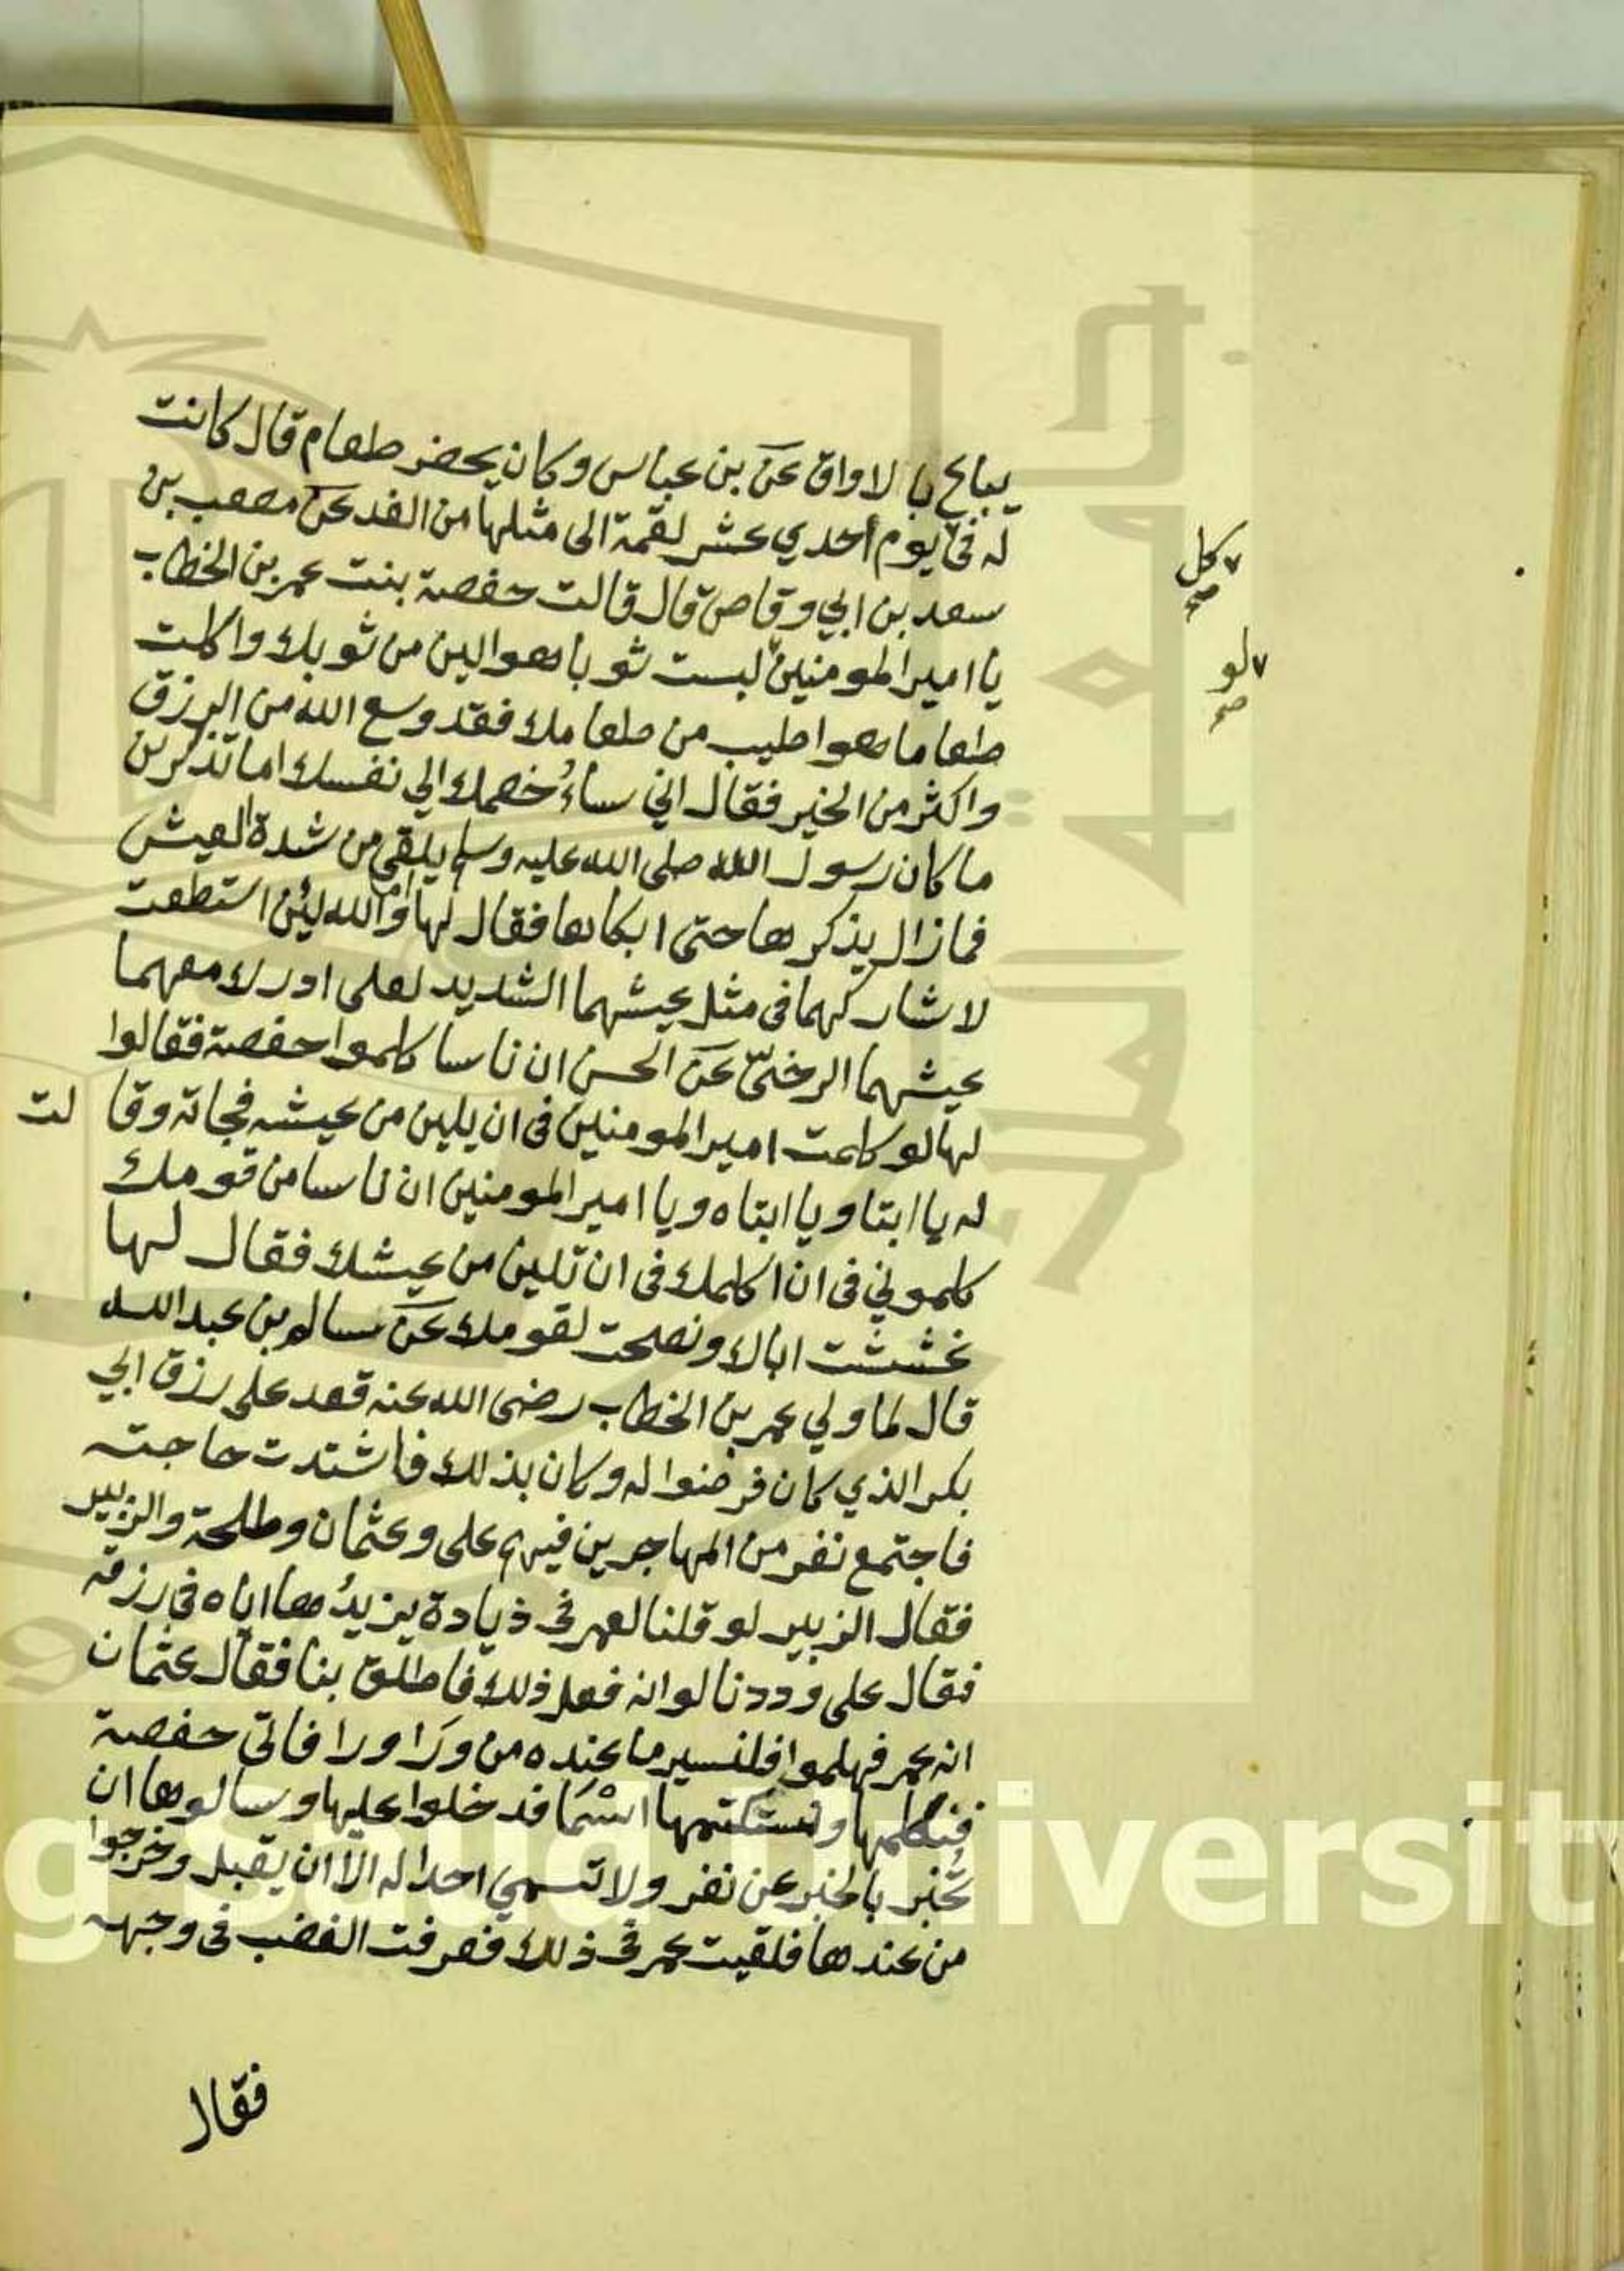 يباع بالاواق عن بن عباس وكان يحضر طعام قال كانت
له في يوم أحدي عشر لقمة الى مثلها من الغد عن مصعب بن
كل صح
سعد بن ابي وقاص قال قالت حفصة بنت عمر بن الخطاب
يا امير المومنين لبست ثوبا هو الين من ثوبك واكلت
لو صح
طعاما هو اطيب من طعامك فقد وسع الله من الرزق
واكثر من الخير فقال اني ساءخصمك الي نفسك اما تذكرين
ما كان رسول الله صلى الله عليه وسلم يلقى من شدة العيش
فمازال يذكرها حتى ابكاها فقال لها اما والله لئن استطعت
لاشاركهما في مثل عيشهما الشديد لعلى ادرك معهما
عيشهما الرخيّ عن الحسن ان ناسا كلموا حفصة فقالوا
لها لو كلمت امير المومنين في ان يلين من عيشه فجاته وقا لت
له يا ابتا ويا ابتاه ويا امير المومنين ان ناسا من قومك
كلموني في ان اكلمك في ان تلين من عيشك فقال لها
غششت اباك ونصحت لقومك عن سالم بن عبد الله
قال لما ولي عمر بن الخطاب رضى الله عنه قعد على رزق ابي
بكر الذي كان فرضوا له وكان بذلك فاشتدت حاجته
فاجتمع نفر من المهاجرين فيهم على وعثمان وطلحة والزبير
فقال الزبير لو قلنا لعمر في ذيادة يزيدُ ها اياه في رزقه
فقال على وددنا لو انه فعل ذلك فاطلق بنا فقال عثمان
انه عمر فهلموا فلنسير ما عنده من ورا ورا فاتى حفصة
فنكلمها ونستكتمها اسما فدخلوا عليها وسالوها ان
تُخبر بالخبر عن نفر ولا تسمي احدا له الّا ان يقبل وخرجوا
من عندها فلقيت عمر في ذلك فعرفت الغضب في وجهه
فقال